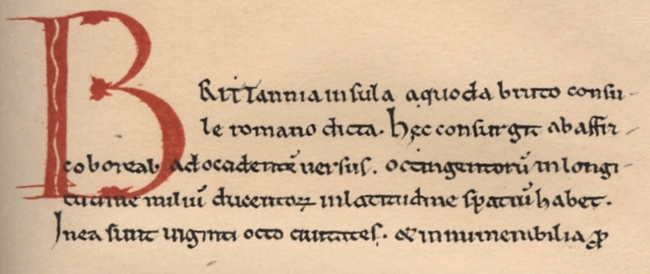 BRITTannia insula a quoda bruto consu-
le romano dicta. hęc consurgit ab affri-
co boreali ad occidentē uersus. octingentorū in longi-
tudine miliū ducentoꝝ in latitudine spatiū habet.
In ea sunt uiginti octo ciuitates. & innumerabilia ꝓ